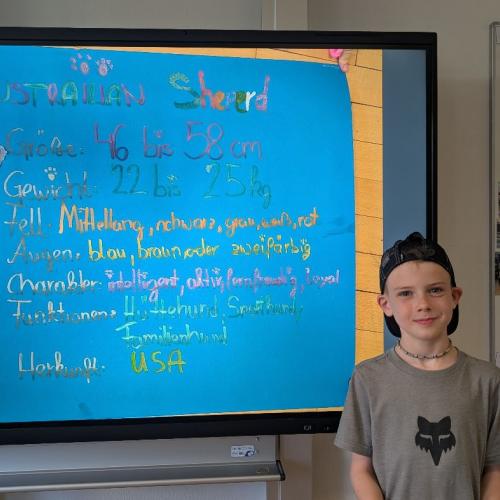 USTRALIAN Sheperd
Größe: 46 bis 58 cm
Gewicht: 22 bis 25 kg
Fell: Mittellang, schwarz, grau, weiß, rot
Augen: blau, braun, oder zweifarbig
Charakter: intelligent, aktiv, lernfreudig, loyal
Funktionen: Hüttehund, Sporthund,
Familienhund
Herkunft: USA